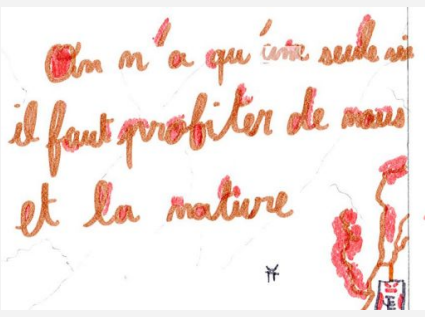 On n'a qu'une seule vie
il faut profiter de nous
et la nature